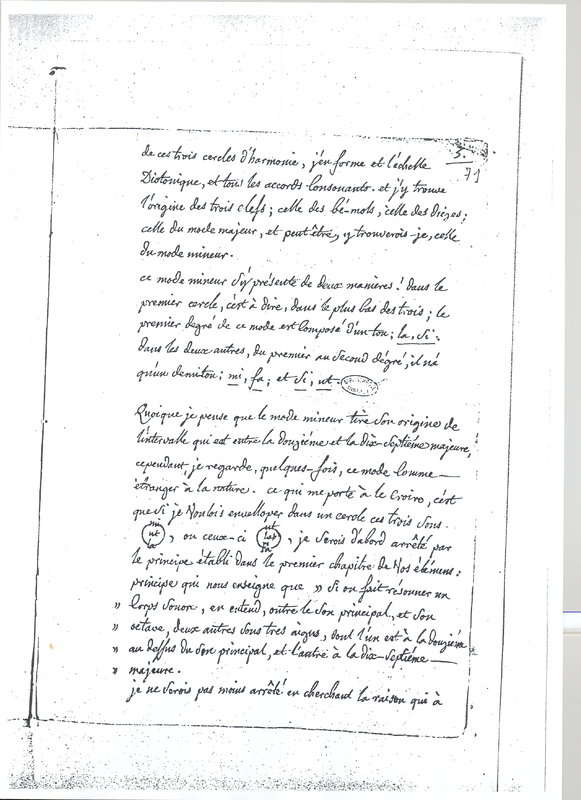 3.
71
de ces trois cercles d'harmonie, j'en forme et l'échelle
Diotonique, et tous les accords Consonants. et j'y trouve
l'origine des trois clefs; celle des bé-mols, celle des Dièzes;
celle du mode majeur, et peut être, y trouverois-je, celle
du mode mineur.
ce mode mineur s'y présente de deux manieres! dans le
premier cercle, c'est à dire, dans le plus bas des trois; le
premier degré de ce mode est composé d'un ton; la, si.
dans les deux autres, du premier au second dégré, il n'a
qu'un demiton; mi, fa; et si, ut.
Quoique je pense que le mode mineur tire son origine de
l'intervalle qui est entre la douziéme et la dix-septiéme majeure,
cependant, je regarde, quelques-fois, ce mode Comme
étranger à la nature. ce qui me porte à le Croire, c'est
que si je Voulois envelopper dans un cercle ces trois sons.
mi ut la, ou ceux-ci ut la fa, je serois d'abord arrêté par
le principe établi dans le premier chapitre de Nos élémens:
principe qui nous enseigne que » si on fait résonner un
» Corps sonore, on entend, outre le son principal, et son
» octave, deux autres sons tres aigus, dont l'un est à la douziéme
» au dessus du son principal, et l'autre à la dix-septiéme
» majeure.
je ne serois pas moins arrêté en cherchant la raison qui à